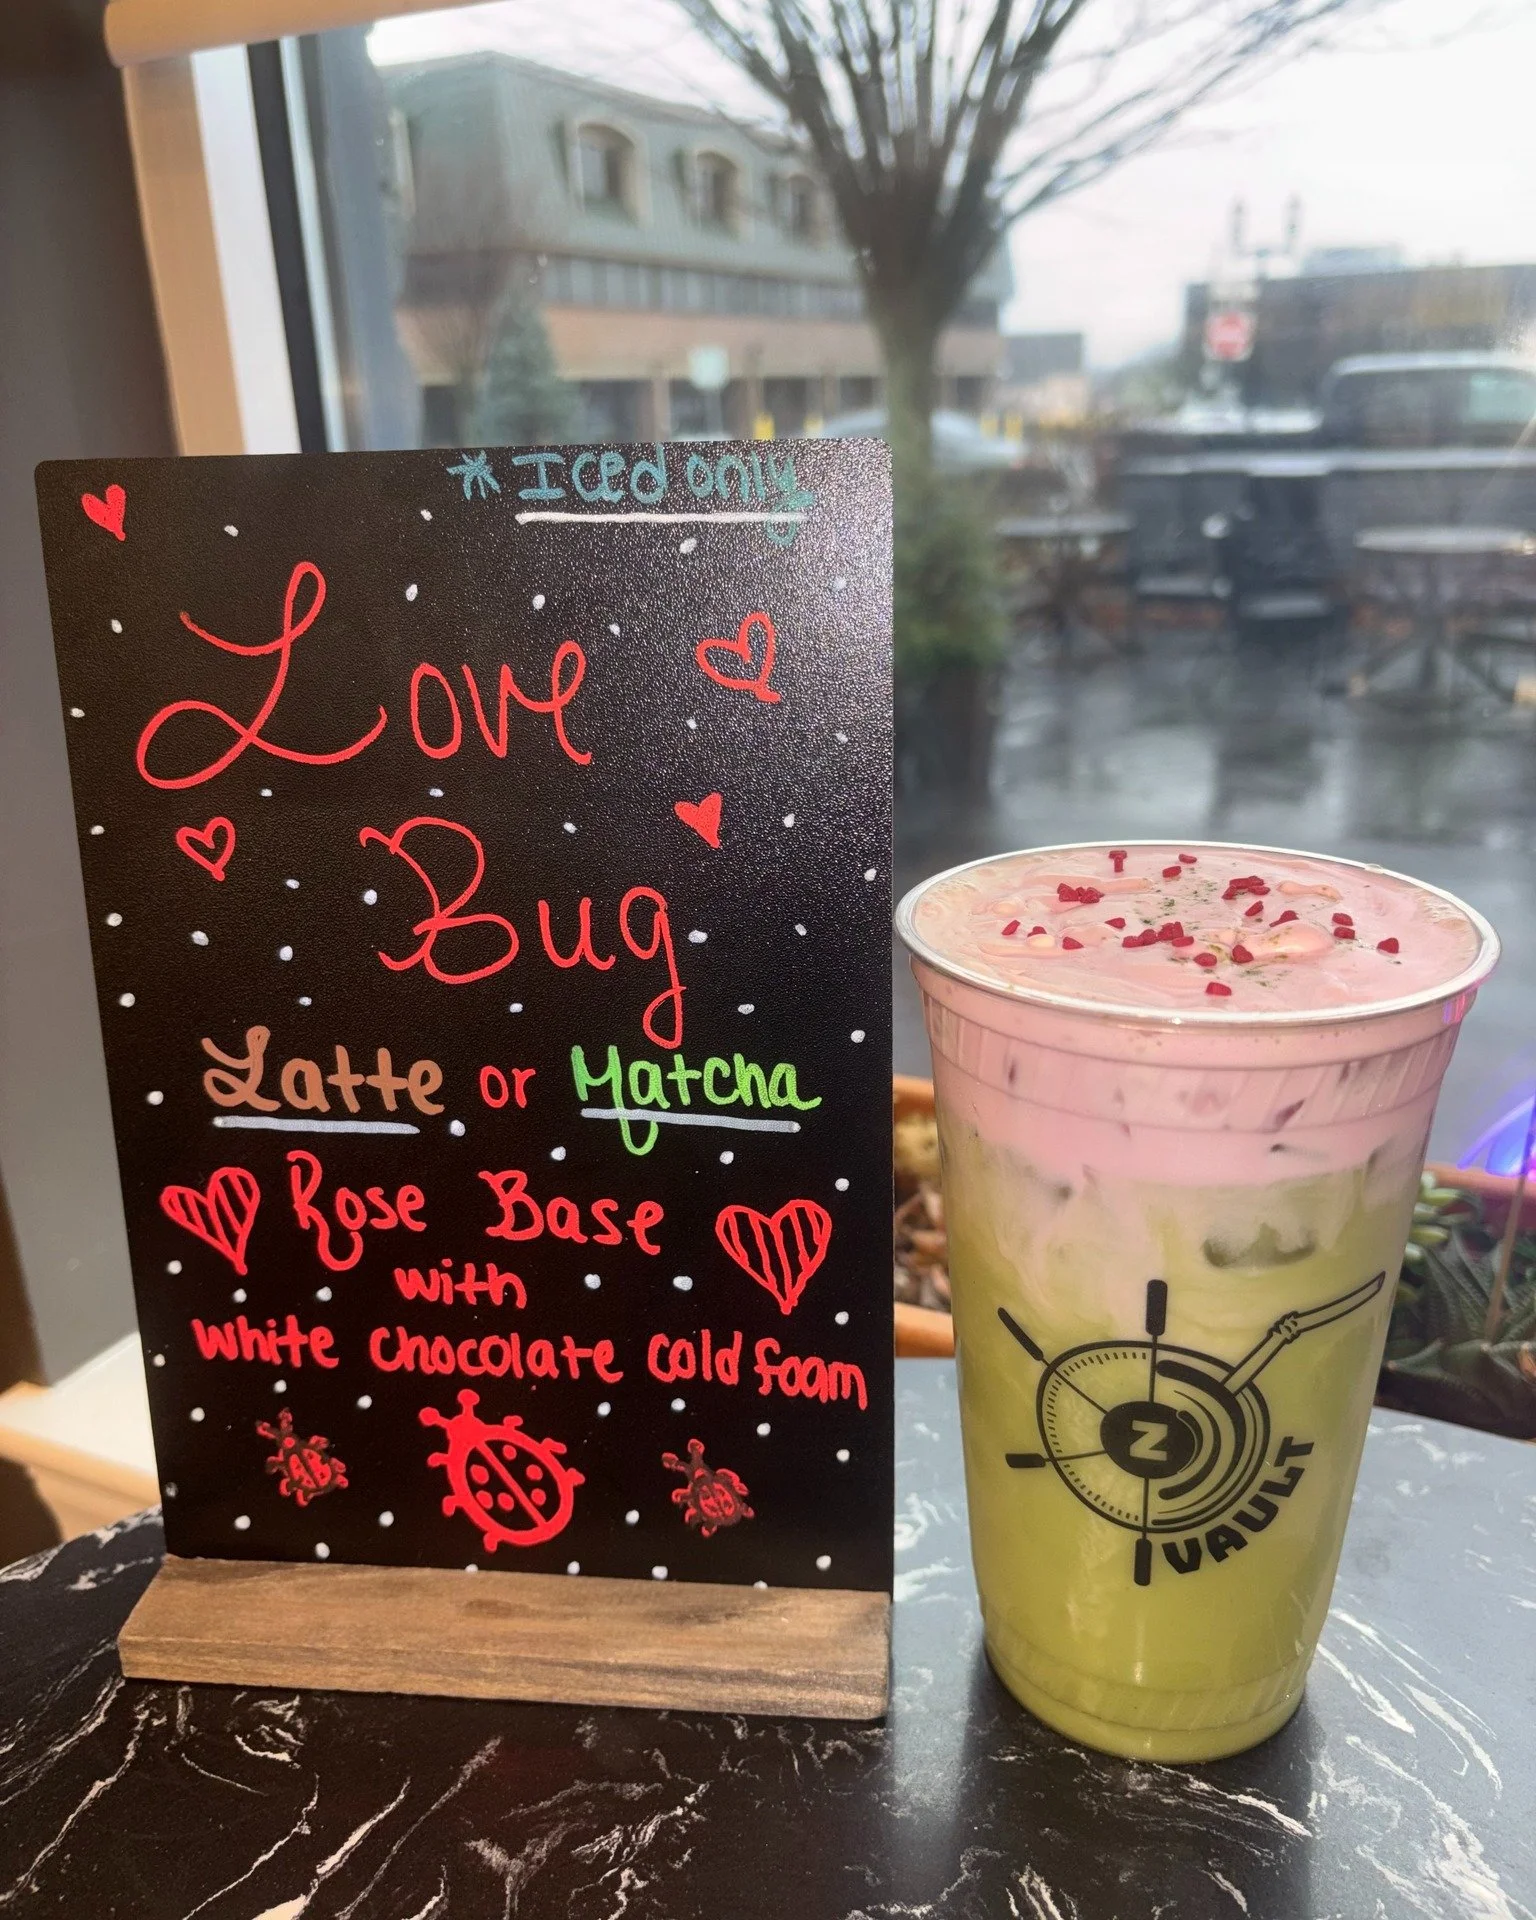 * Iced only
Love
Bug
Latte or Matcha
Rose Base
with
White Chocolate Cold foam
Z
VAULT